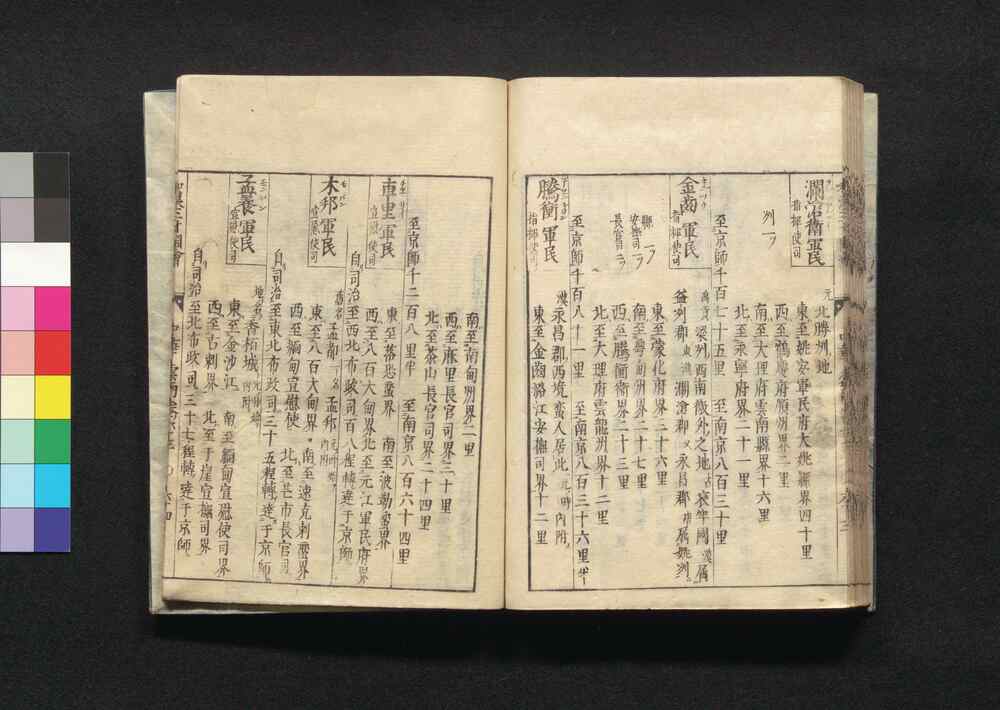 瀾滄衛軍民
指揮使司
元北勝州地
東至姚安軍民府大姚縣界四十里
西至鶴慶府順州界二里
南至大理府雲南縣界十六里
北至永寧府界二十一里
州一
至京師千百七十五里 至南京八百三十里
金齒軍民
指揮使司
東至蒙化府界二十六里
南至
西至騰衝衛界二十三里
北至大理府雲龍州界十二里
縣一
安撫司
長官
至京師千百八十一里 至南京八百三十六里半
騰衝軍民
指揮使司
漢永昌郡西境蠻人居此元時內附
東至金齒潞江安撫司界十二里
南至南甸州界二里
西至 里長官司界二十里
北至茶山長官司界二十四里
至京師千二百八里半 至南京八百六十四里
車里軍民
宣慰使司
東至 恐蠻界 南至波勒蠻界
西至八百大甸界北至元江軍民府界
自司治至西北布政司百八程轉達于京師
木邦軍民
宣慰使司
舊名孟都一名孟邦
東至八百大甸界 南至速克剌蠻界
西至緬甸宣慰使 北至芒市長官司
自司治至東北布政司三十五程轉達于京師
孟養軍民
宣慰使司
地名香栢城
東至金沙江 南至緬甸宣慰使司界
西至古剌界 北至干崖宣撫司界
自司治至北布政司三十七程轉達于京師